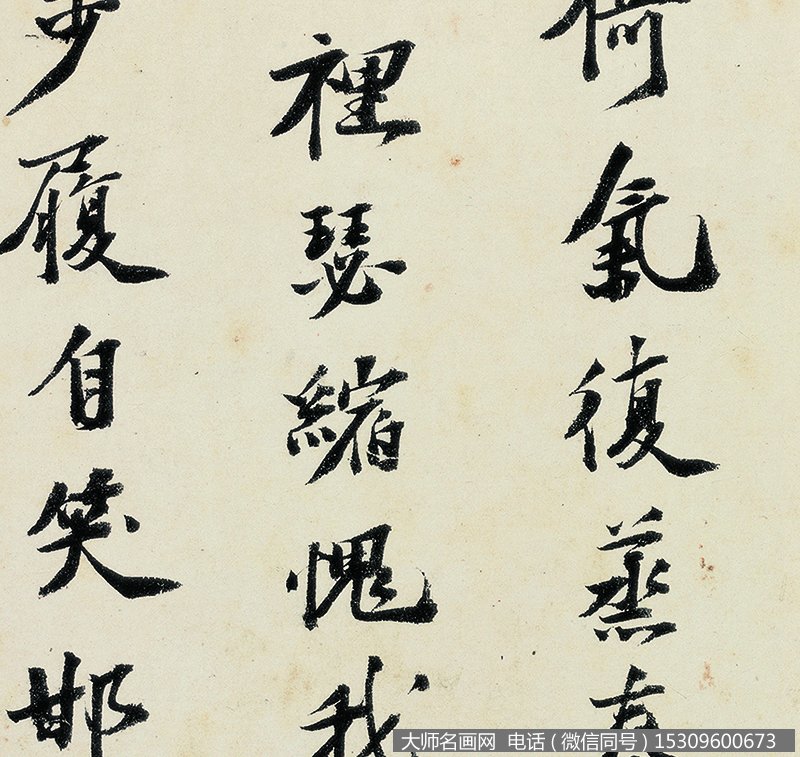 氣復蒸
裡瑟縮愧我
步履自笑邯
大师名画网 电话（微信同号）15309600673